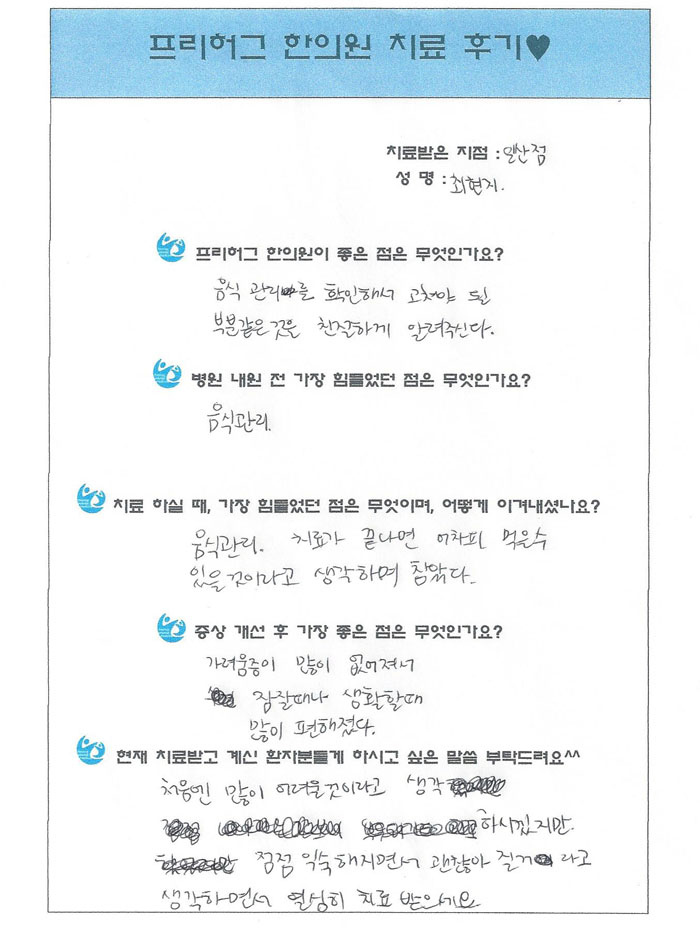 프리허그 한의원 치료 후기♥
치료받은 지점 : 일산점
성 명 : 최현지.
프리허그 한의원이 좋은 점은 무엇인가요?
음식 관리를 확인해서 고쳐야 될
부분같은것은 친절하게 알려주신다.
병원 내원 전 가장 힘들었던 점은 무엇인가요?
음식관리.
치료 하실 때, 가장 힘들었던 점은 무엇이며, 어떻게 이겨내셨나요?
음식관리. 치료가 끝나면 어차피 먹을수
있을것이라고 생각하며 참았다.
증상 개선 후 가장 좋은 점은 무엇인가요?
가려움증이 많이 없어져서
잠잘때나 생활할때
많이 편해졌다.
현재 치료받고 계신 환자분들게 하시고 싶은 말씀 부탁드려요^^
처음엔 많이 어려울것이라고 생각
하시겠지만.
점점 익숙해지면서 괜찮아 질거라고
생각하면서 열심히 치료 받으세요